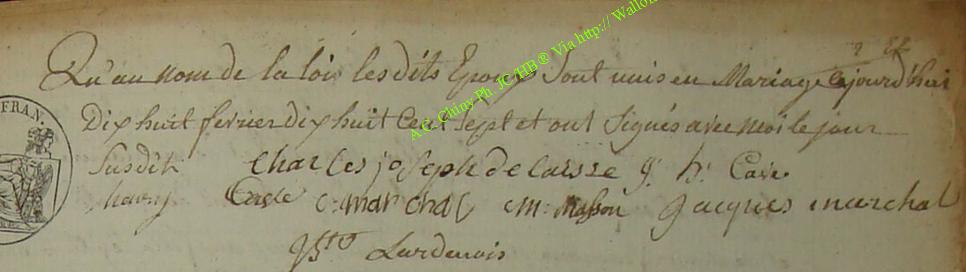 Qu'au nom de la loi les dits Epoux sont unis en Mariage cejourd'huis
Dix huit fevrier dix huit Cent sept et ont Signés avec Moi le jour
Susdit Charles joseph delaisse J. h.
C. marchal M. Masson Jacques marchal
Lardenois
FRAN.
A.C. Chiny Ph. JC/HB ® Via http:// Wallon